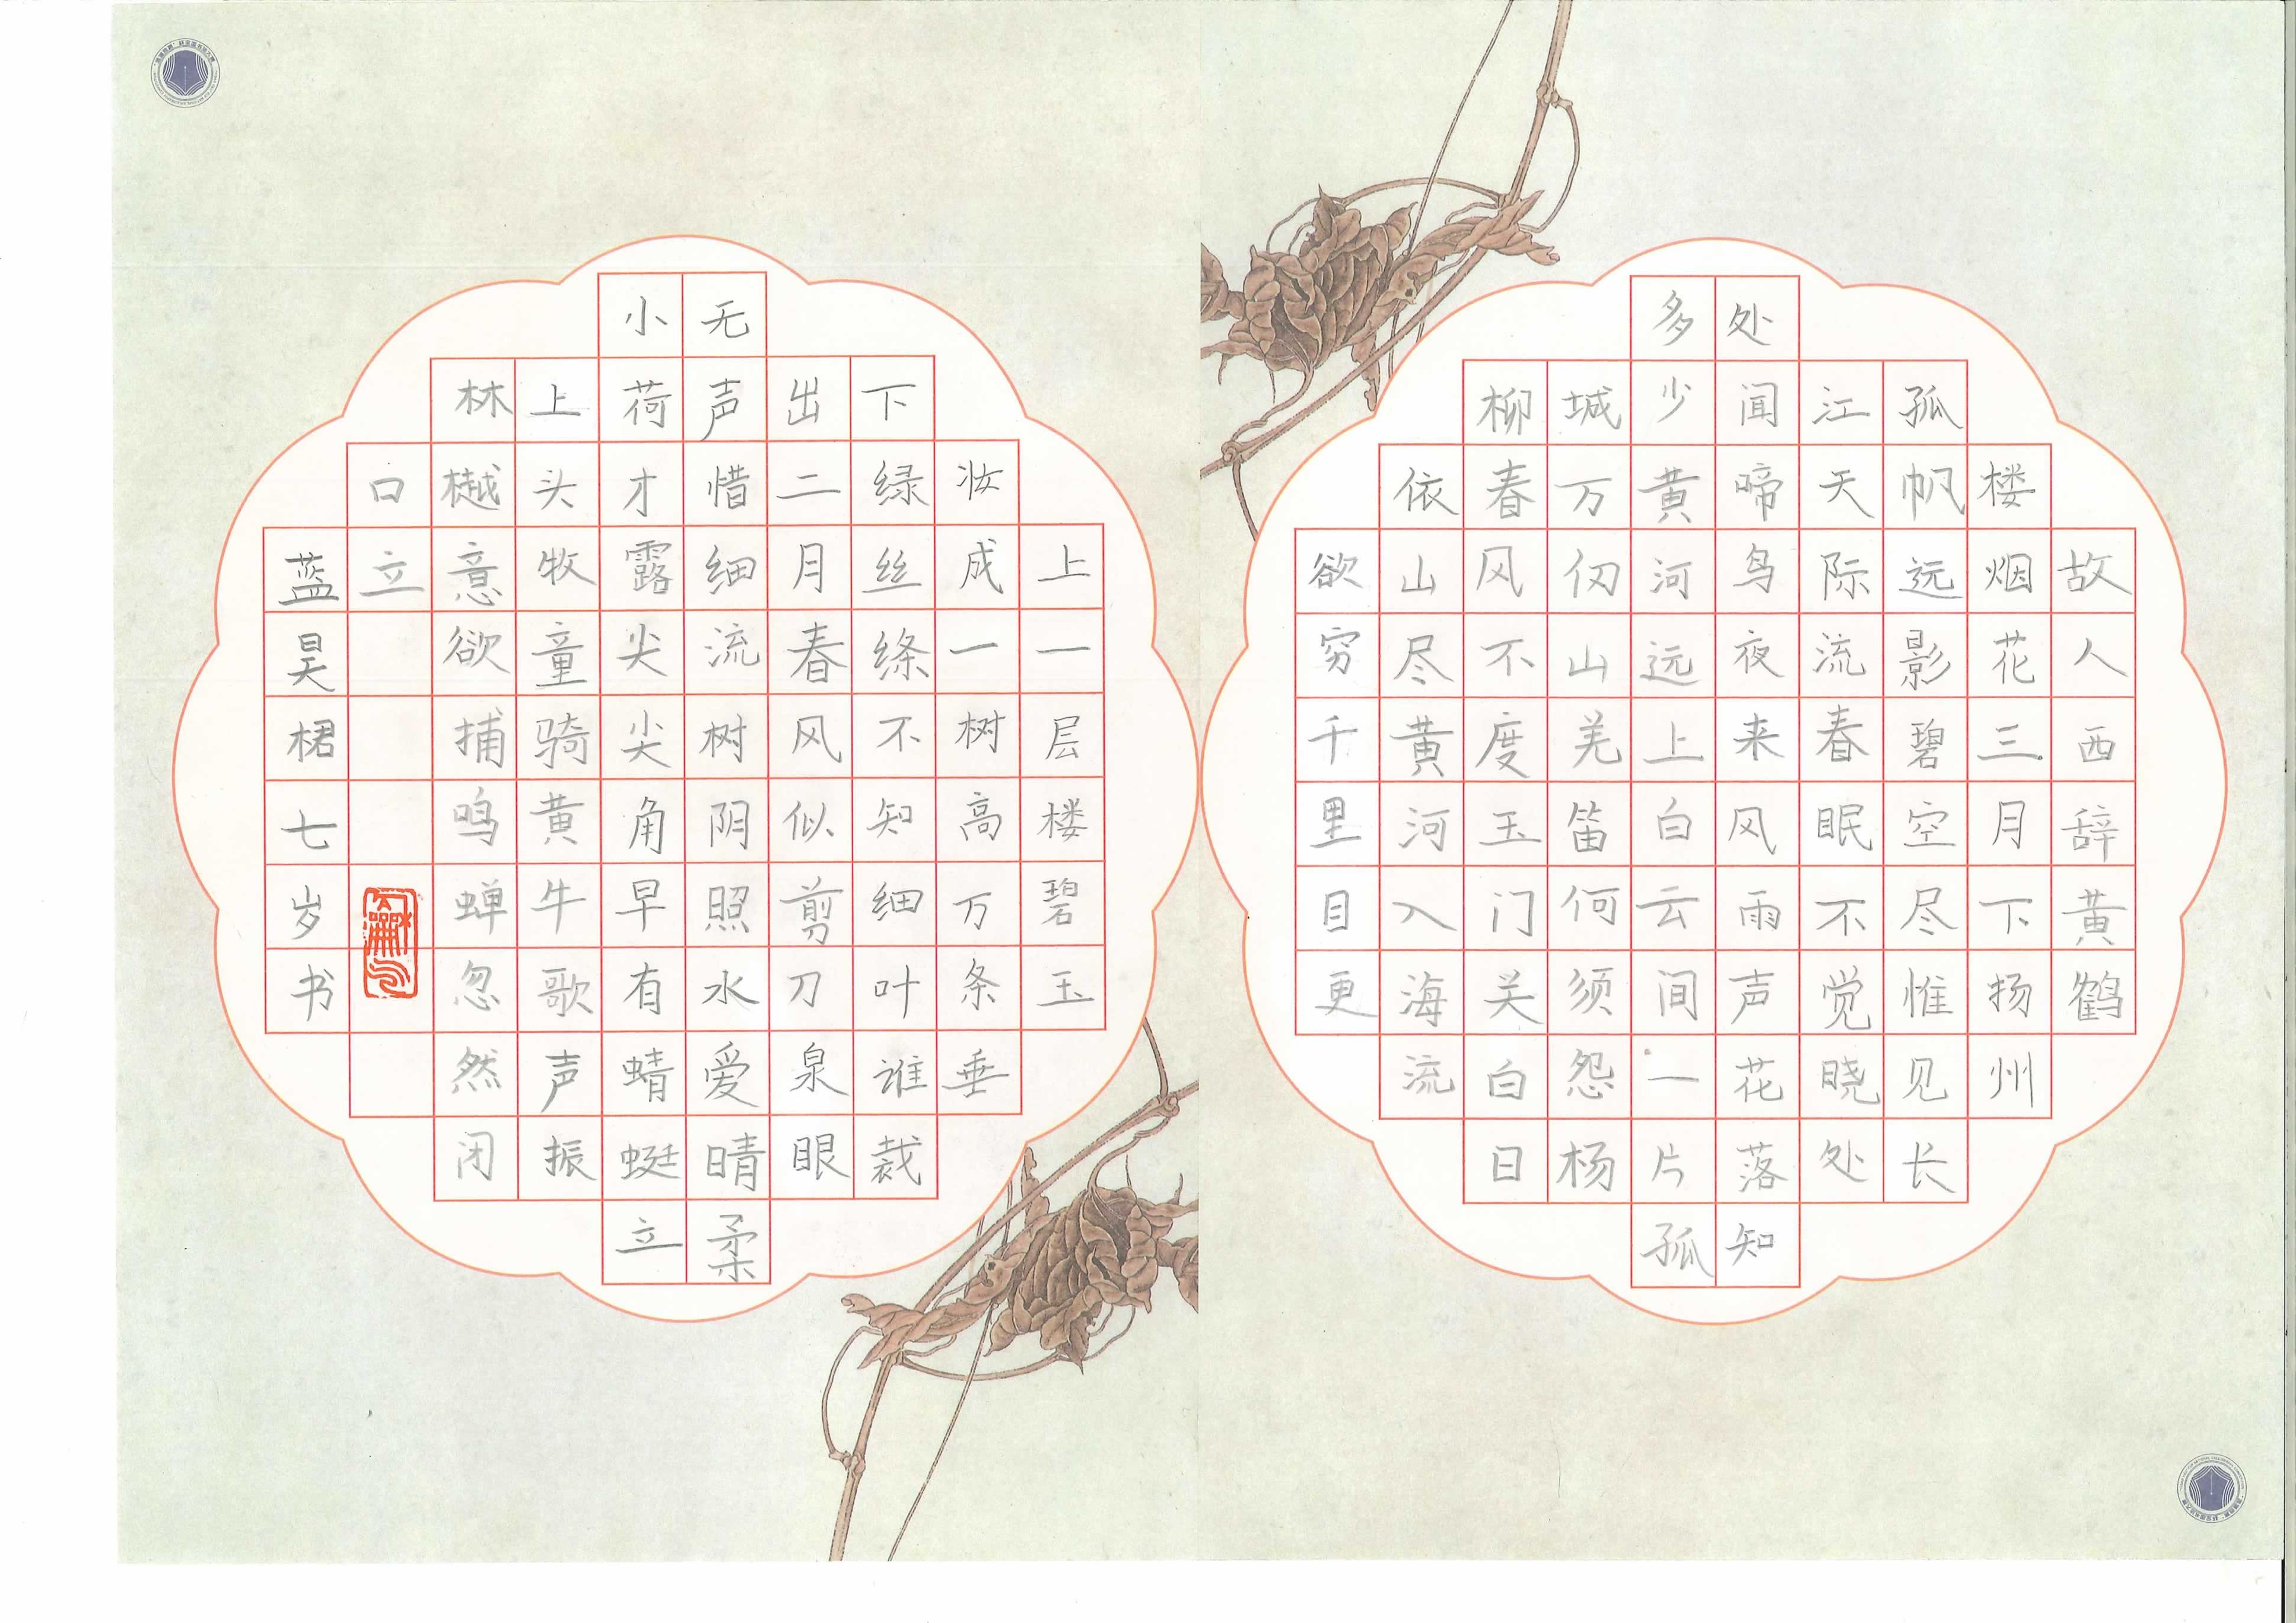 故人西辞黄鹤
楼烟花三月下扬州
孤帆远影碧空尽惟见长
江天际流春眠不觉晓处
处闻啼鸟夜来风雨声花落知
多少黄河远上白云间一片孤
城万仞山羌笛何须怨杨
柳春风不度玉门关白日
依山尽黄河入海流
欲穷千里目更
上一层楼碧玉
妆成一树高万条垂
下绿丝绦不知细叶谁裁
出二月春风似剪刀泉眼
无声惜细流树阴照水爱晴柔
小荷才露尖尖角早有蜻蜓立
上头牧童骑黄牛歌声振
林樾意欲捕鸣蝉忽然闭
口立
蓝昊桾七岁书